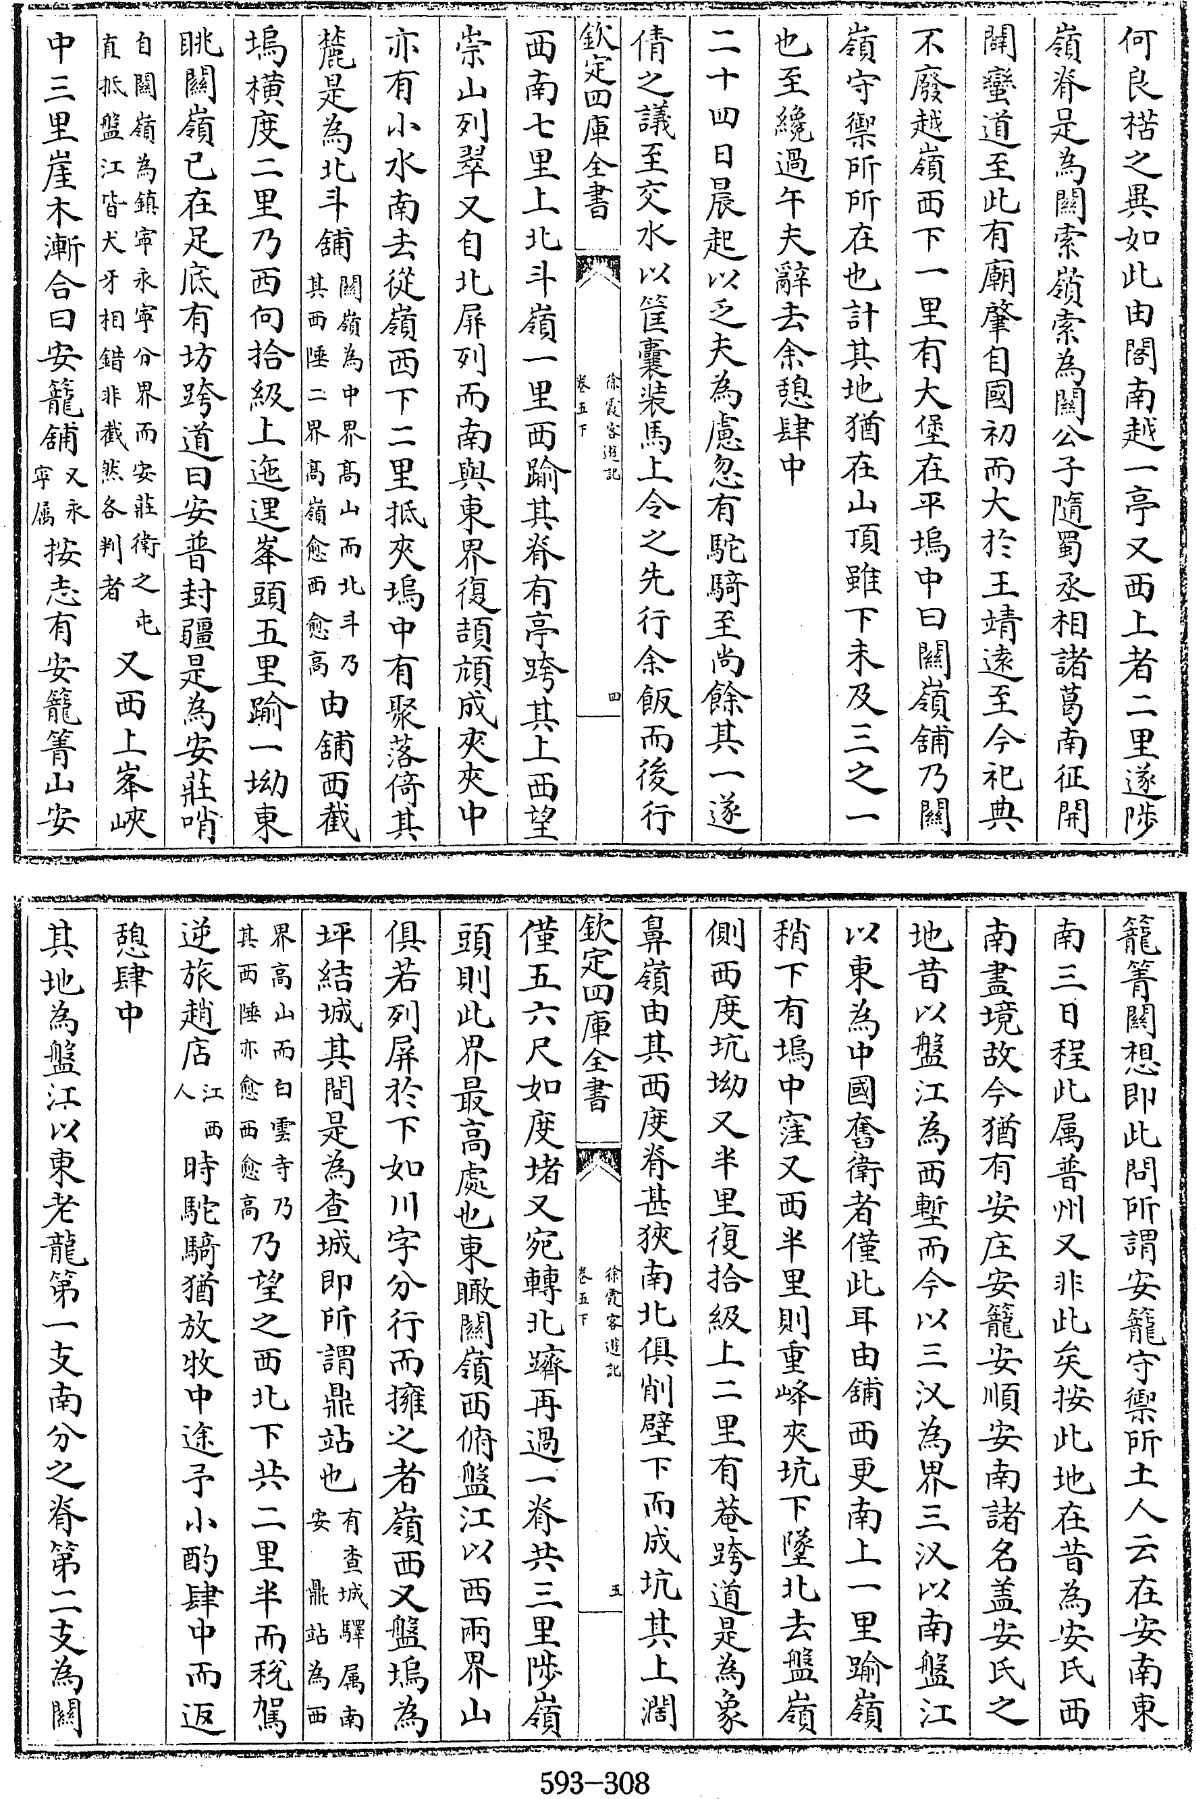 何良楛之異如此由閣南越一亭又西上者二里遂陟
嶺脊是為關索嶺索為關公子隨蜀丞相諸葛南征開
闢蠻道至此有廟肇自國初而大於王靖遠至今祀典
不廢越嶺西下一里有大堡在平塢中曰關嶺舖乃關
嶺守禦所所在也計其地猶在山頂雖下未及三之一
也至纔過午夫辭去余憩肆中
二十四日晨起以乏夫為慮忽有駝騎至尚餘其一遂
倩之議至交水以筐囊装馬上令之先行余飯而後行
欽定四庫全書
徐霞客遊記
卷五下
四
西南七里上北斗嶺一里西踰其脊有亭跨其上西望
崇山列翠又自北屏列而南與東界復頡頏成夾夾中
亦有小水南去從嶺西下二里抵夾塢中有聚落倚其
麓是為北斗舖
關嶺為中界高山而北斗乃
其西陲二界高嶺愈西愈高
由舖西截
塢橫度二里乃西向拾級上迤邐峯頭五里踰一坳東
眺關嶺已在足底有坊跨道曰安普封疆是為安莊哨
自關嶺為鎮寧永寧分界而安莊衛之屯
直抵盤江皆犬牙相錯非截然各判者
又西上峯峽
中三里崖木漸合曰安籠舖
又永
寧属
按志有安籠箐山安
籠箐關想即此問所謂安籠守禦所土人云在安南東
南三日程此属普州又非此矣按此地在昔為安氏西
南盡境故今猶有安庄安籠安順安南諸名盖安氏之
地昔以盤江為西塹而今以三汊為界三汊以南盤江
以東為中國奮衛者僅此耳由舖西更南上一里踰嶺
稍下有塢中窪又西半里則重峰夾坑下墜北去盤嶺
側西度坑坳又半里復拾級上二里有菴跨道是為象
鼻嶺由其西度脊甚狹南北俱削壁下而成坑其上濶
欽定四庫全書
徐霞客遊記
卷五下
五
僅五六尺如度堵又宛轉北躋再過一脊共三里陟嶺
頭則此界最高處也東瞰關嶺西俯盤江以西兩界山
俱若列屏於下如川字分行而擁之者嶺西又盤塢為
坪結城其間是為查城即所謂鼎站也
有查城驛属南
安 鼎站為西
界高山而白雲寺乃
其西陲亦愈西愈高
乃望之西北下共二里半而稅駕
逆旅趙店
江西
人
時駝騎猶放牧中途予小酌肆中而返
憩肆中
其地為盤江以東老龍第一支南分之脊第二支為關
593-308